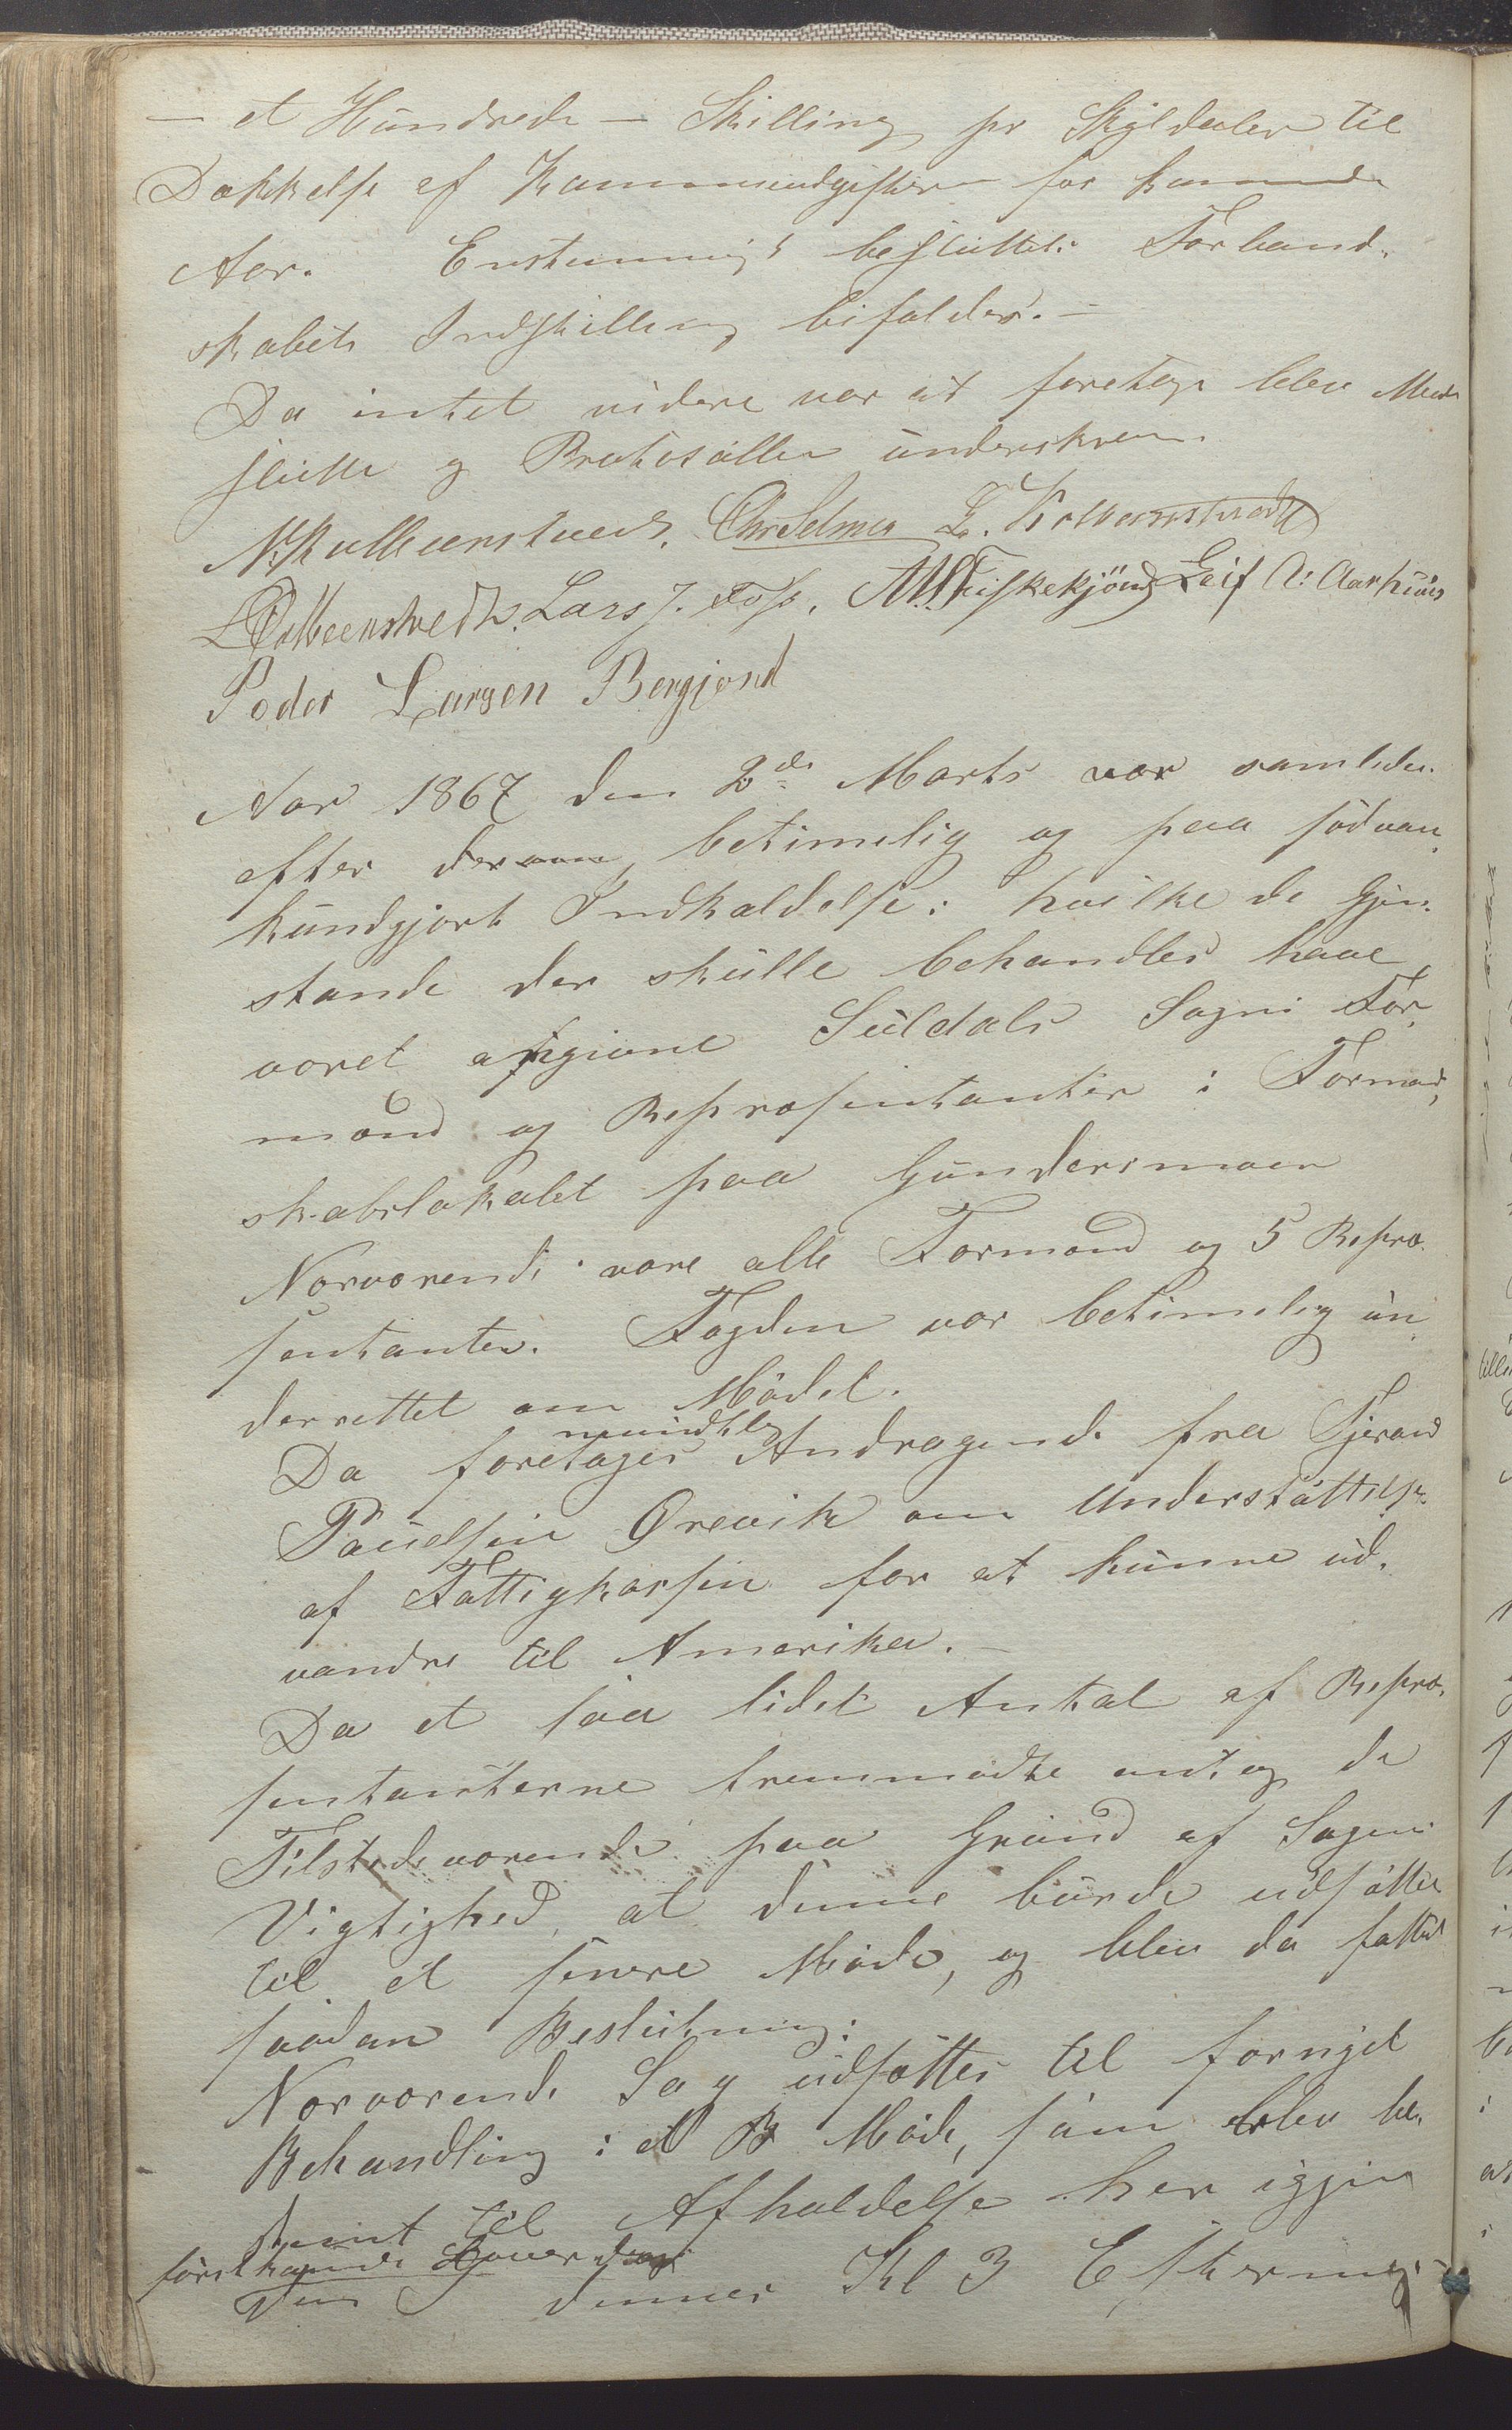 — et Hundrede — Skilling pr Skylddaler til
Dækkelse af Kommuneudgifterne for kommende
Aar. Enstemmigt besluttet: Formand-
skabets Indstilling bifaldes. —
Da intet videre var at foretage blev Mødet
sluttet og Protokollen underskreven.
N. Kolbeenstvedt. Chr Selmer L. Kolbeenstvedt
L Kolbeenstvedt. Lars J. Foss. A. Fiskekjönd Leif A: Aarhuus
Peder Larsen Bergjord
Aar 1867 den 2de Marts var samlede
efter derom betimelig og paa sædvan.
kundgjort Indkaldelse: hvilke de Gjen-
stande der skulle behandles have
været angivne Suldals Sogns For-
mænd og Repræsentanter i Formand-
skabslokalet paa Gundersmoen
Nærværende vare alle Formænd og 5 Repræ-
sentanter. Fogden var betimelig un-
derrettet om Mødet.
mundtlig
Da foretages Andragende fra Tjerand
Poulsen Ørevik om Understøttelse
af Fattigkassen for at kunne ud-
vandre til Amerika. —
Da et saa lidet Antal af Repræ-
sentanterne fremmødte antog de
Tilstedeværende paa Grund af Sagens
Vigtighed at denne burde udsættes
til et senere Møde, og blev da fattet
saadan Beslutning:
Nærværende Sag udsættes til fornyet
Behandling i et Møde, som blev be-
stemt til Afholdelse her igjen
førstkommende Løverdag
den dennes Kl 3 Efterm.